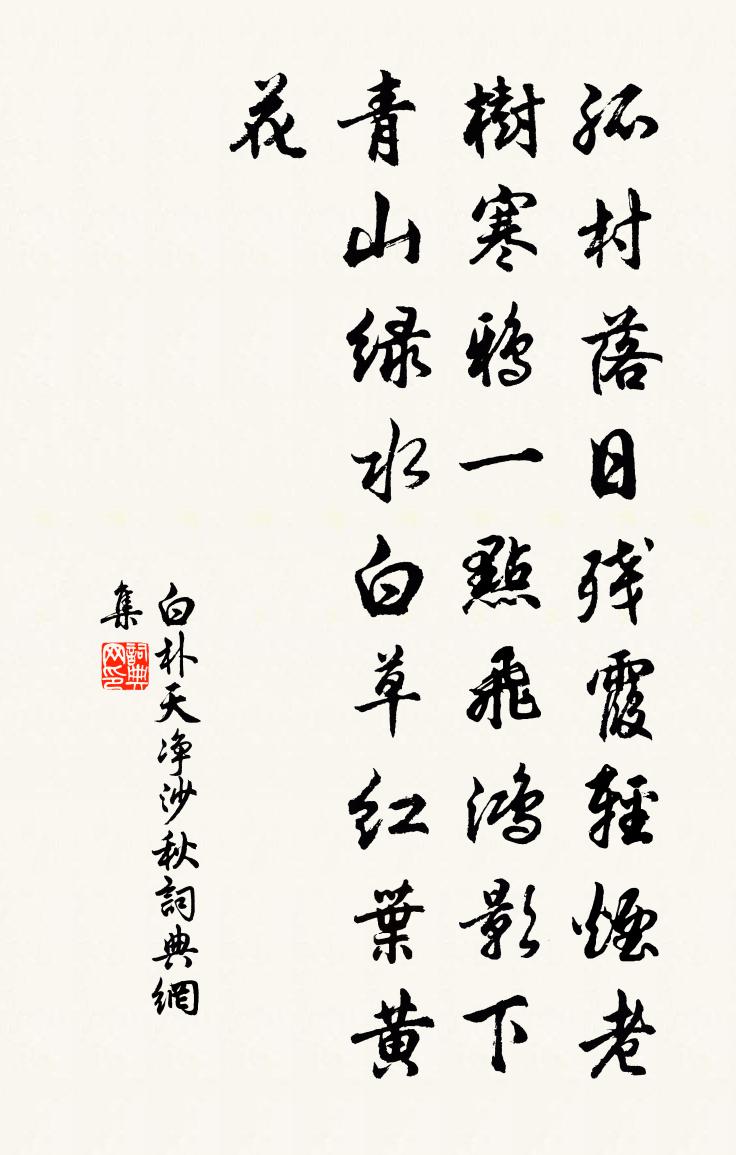 孤村落日残霞輕煙老
樹寒鴉一點飛鴻影下
青山緑水白草紅葉黄
花
白朴天净沙秋詞典網
集
詞典网印